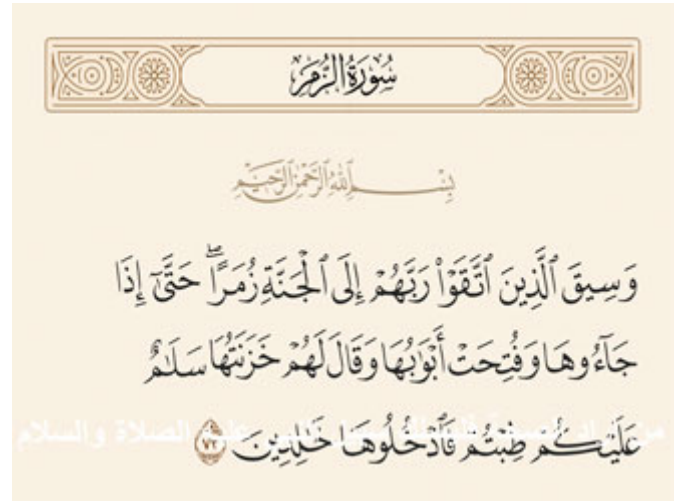 سُورَةُ الزُّمَرِ
بِسْمِ ٱللَّهِ ٱلرَّحْمَٰنِ ٱلرَّحِيمِ
وَسِيقَ ٱلَّذِينَ ٱتَّقَوْا۟ رَبَّهُمْ إِلَى ٱلْجَنَّةِ زُمَرًا ۖ حَتَّىٰٓ إِذَا
جَآءُوهَا وَفُتِحَتْ أَبْوَٰبُهَا وَقَالَ لَهُمْ خَزَنَتُهَا سَلَٰمٌ
عَلَيْكُمْ طِبْتُمْ فَٱدْخُلُوهَا خَٰلِدِينَ ٧٣
من اراد عليه الصلاة والسلام